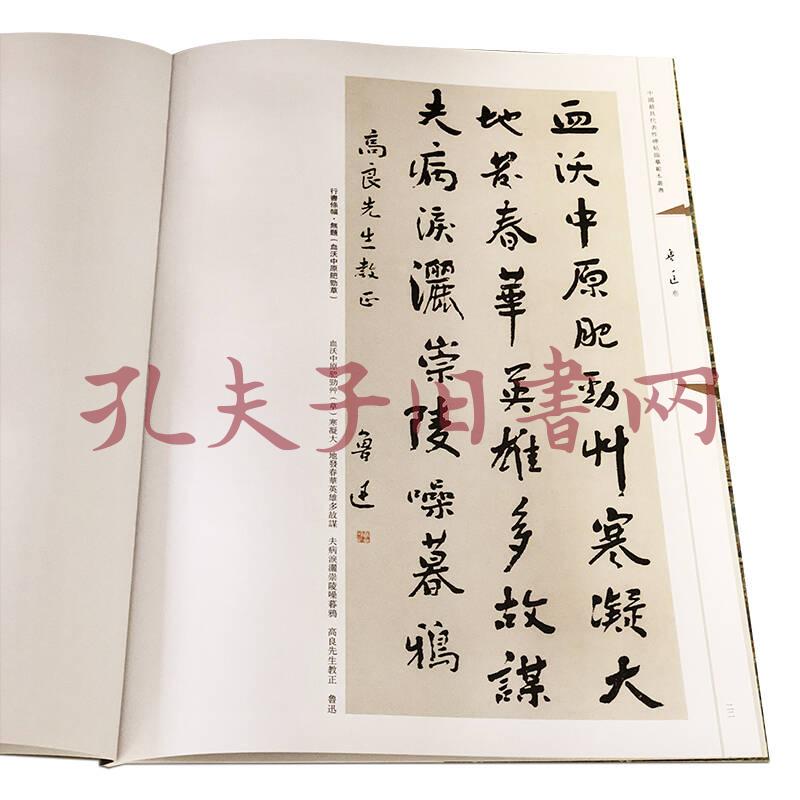 血沃中原肥勁艸寒凝大
地發春華英雄多故謀
夫病淚灑崇陵噪暮鴉
高良先生教正
魯迅
行書條幅·無題（血沃中原肥勁草）
血沃中原肥勁艸（草）寒凝大 地發春華英雄多故謀 夫病淚灑崇陵噪暮鴉 高良先生教正 魯迅
中國最具代表性碑帖臨摹範本叢書
魯迅 卷
孔夫子旧书网